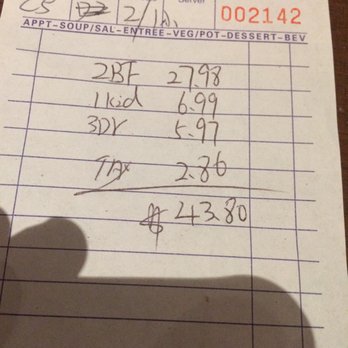 Server
002142
2/1
APPT-SOUP/SAL-ENTREE-VEG/POT-DESSERT-BEV
2BF 27.98
1 kid 6.99
3Dr 5.97
TAX 2.86
$ 43.80